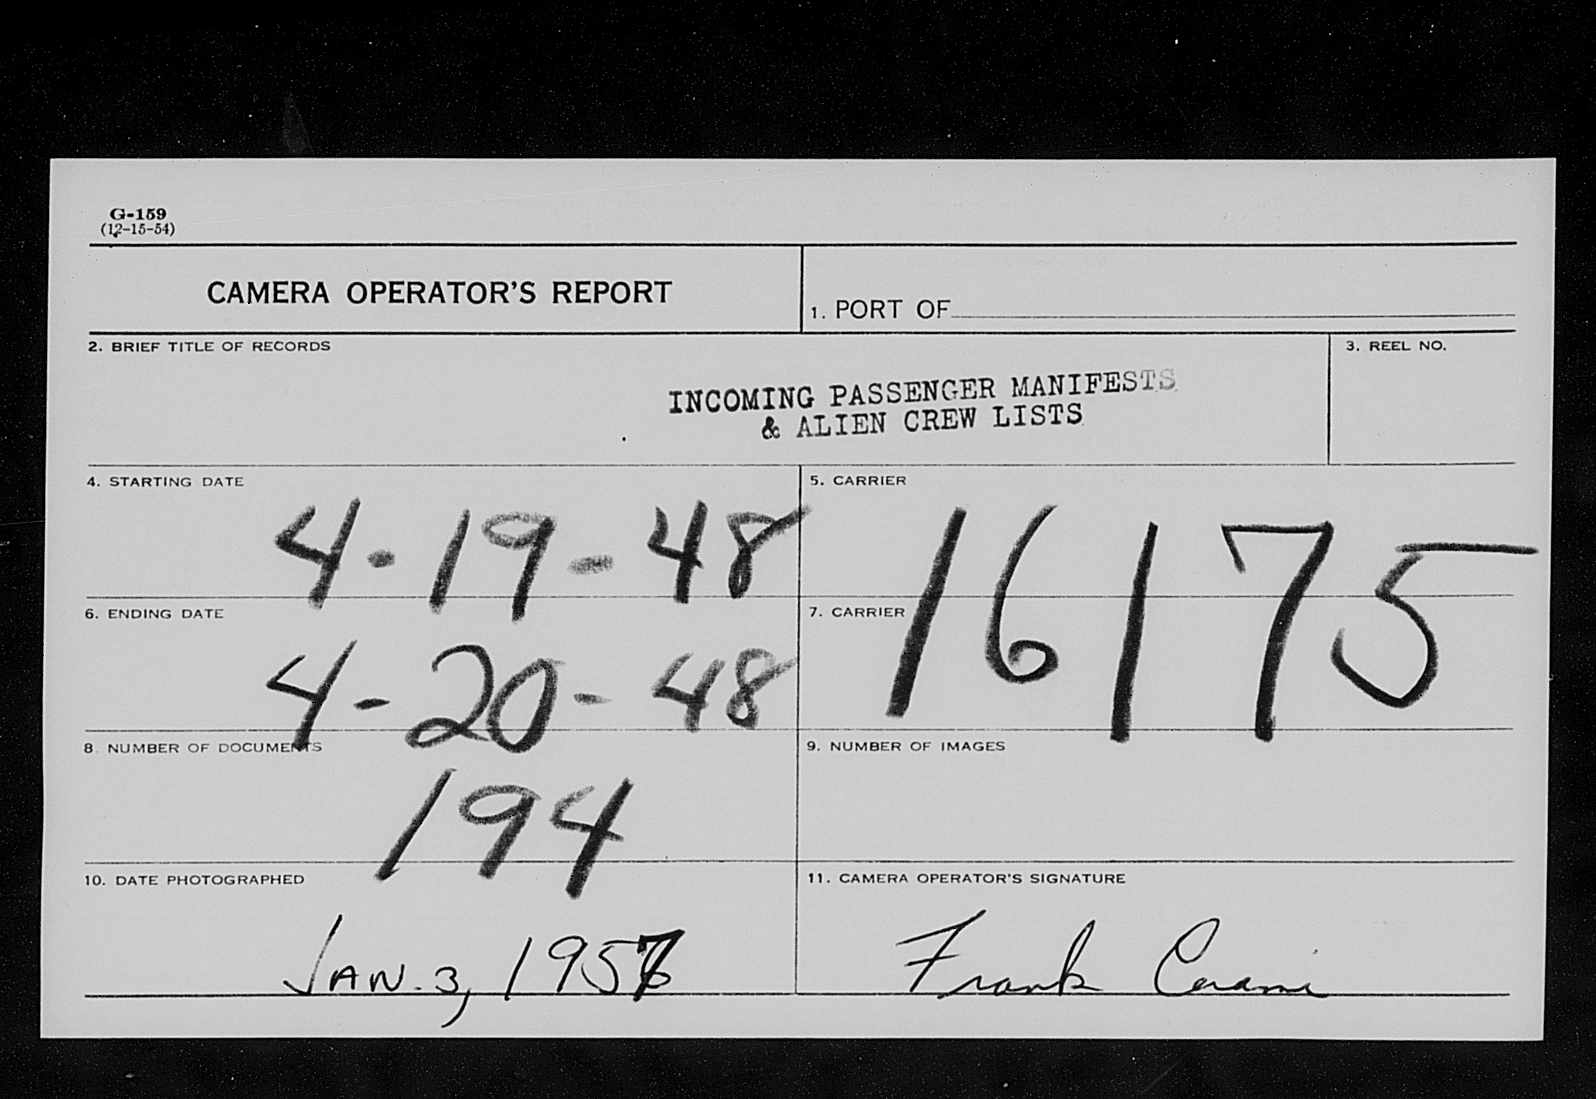 G-159
(12-15-54)
CAMERA OPERATOR'S REPORT
1. PORT OF
2. BRIEF TITLE OF RECORDS
3. REEL NO.
INCOMING PASSENGER MANIFESTS
& ALIEN CREW LISTS
4. STARTING DATE
4-19-48
5. CARRIER
16175
6. ENDING DATE
4-20-48
7. CARRIER
8. NUMBER OF DOCUMENTS
194
9. NUMBER OF IMAGES
10. DATE PHOTOGRAPHED
JAN. 3, 1957
11. CAMERA OPERATOR'S SIGNATURE
Frank Cerami